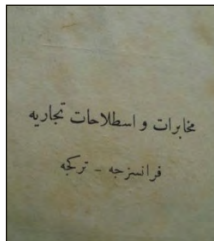 مخابرات و اسطلاحات تجاریه
فرانسزجه - ترکجه